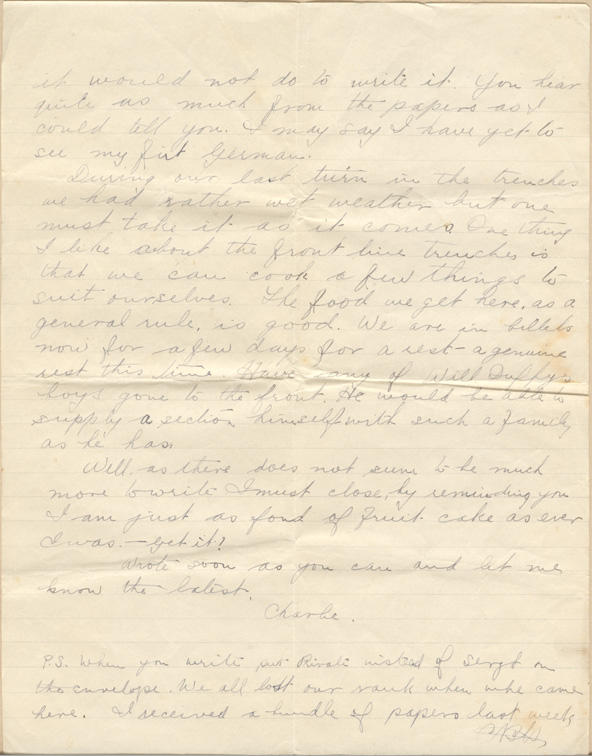 it would not do to write it. You hear
quite as much from the papers as I
could tell you. I may say I have yet to
see my first German.
During our last turn in the trenches
we had rather wet weather but one
must take it as it comes. One thing
I like about the front line trenches is
that we can cook a few things to
suit ourselves. The food we get here, as a
general rule, is good. We are in billets
now for a few days for a rest - a genuine
rest this time. Have any of Will Duffy's
boys gone to the front. He would be able to
supply a section himself with such a family
as he has.
Well, as there does not seem to be much
more to write I must close, by reminding you
I am just as fond of fruit cake as ever
I was. - Get it?
Write soon as you can and let me
know the latest.
Charlie.
P.S. When you write put Private instead of Sergt on
the envelope. We all lost our rank when we came
here. I received a bundle of papers last week